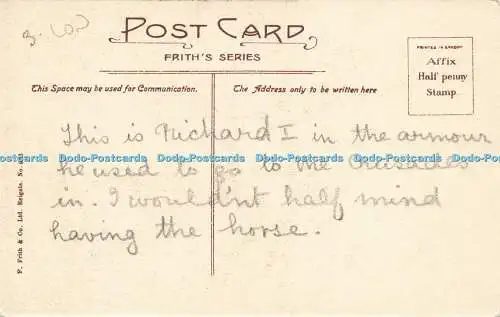 3. (o)
POST CARD
FRITH'S SERIES
PRINTED IN SAXONY
Affix
Half penny
Stamp.
This Space may be used for Communication.
The Address only to be written here
This is Richard I in the armour
he used to go to the Crusades
in. I wouldn't half mind
having the horse.
Dodo-Postcards Dodo-Postcards Dodo-Postcards Dodo-Postcards Dodo-Postcards
F. Frith & Co. Ltd. Reigate. No.